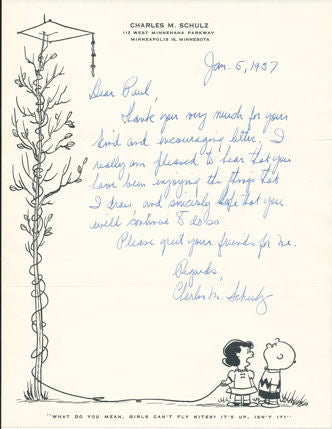 CHARLES M. SCHULZ
112 WEST MINNEHAHA PARKWAY
MINNEAPOLIS 19, MINNESOTA
Jan. 5, 1957
Dear Paul,
Thank you very much for your
kind and encouraging letter. I
really am pleased to hear that you
have been enjoying the things that
I draw, and sincerely hope that you
will continue to do so.
Please greet your friends for me.
Regards,
Charles M. Schulz
"WHAT DO YOU MEAN, GIRLS CAN'T FLY KITES? IT'S UP, ISN'T IT?"